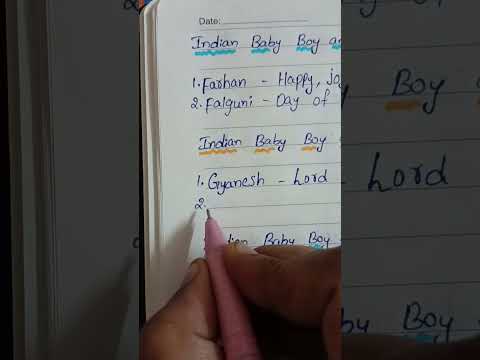 Date:
Indian Baby Boy
1. Farhan - Happy, jo
2. Falguni - Day of
Indian Baby Boy
1. Gyanesh - Lord
2.
Indian Baby Boy